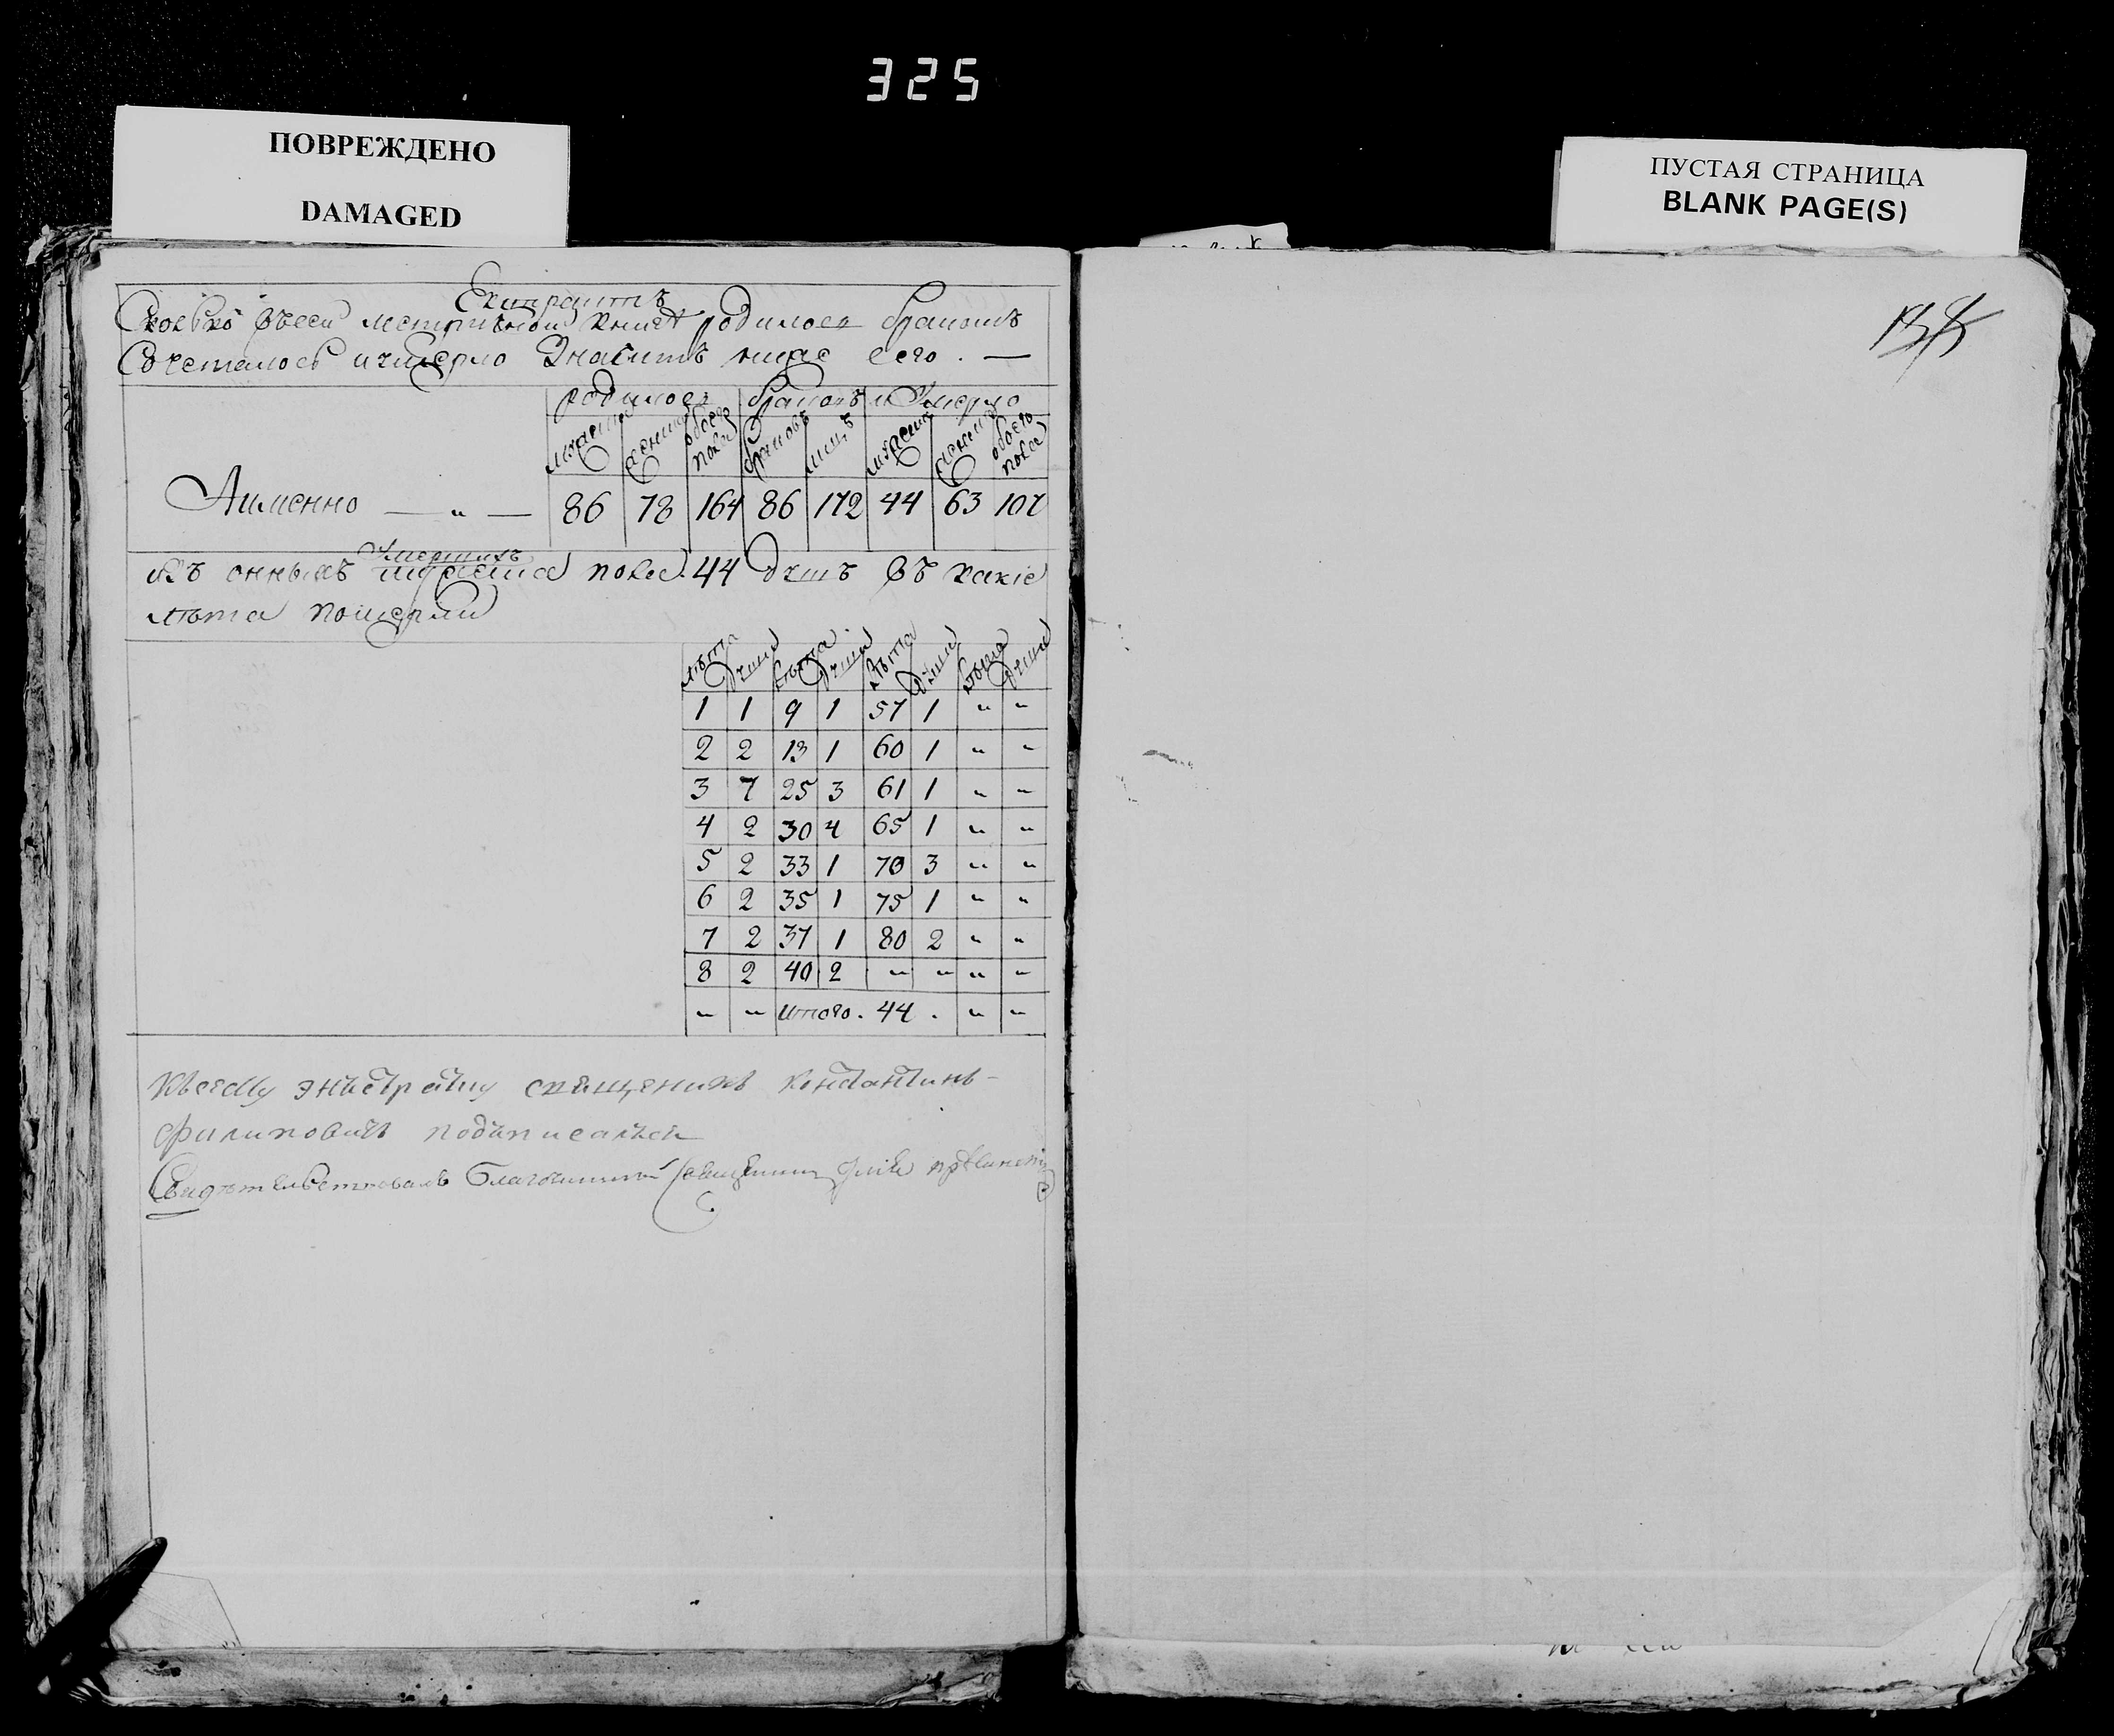 325
ПОВРЕЖДЕНО
DAMAGED
ПУСТАЯ СТРАНИЦА
BLANK PAGE(S)
Екстрактъ
родилося бракомъ
Сочеталось и умерло значитъ ниже сего . —
родилось браковъ и умерло
мужеска женска обоего пола браковъ лицъ мужеска женска обоего пола
Аименно — " — 86 78 164 86 172 44 63 107
умершихъ
Къ онымъ мужеска пола 44 душъ въ какіе
лѣта померли
лѣта души лѣта души лѣта души лѣта души
1 1 9 1 57 1 " "
2 2 13 1 60 1 " "
3 7 25 3 61 1 " "
4 2 30 4 65 1 " "
5 2 33 1 70 3 " "
6 2 35 1 75 1 " "
7 2 37 1 80 2 " "
8 2 40 2 " " " "
" " итого . 44 . " "
священикъ константинъ-
филиповичъ подъписалъся
Свидѣтельствовалъ Благочинный